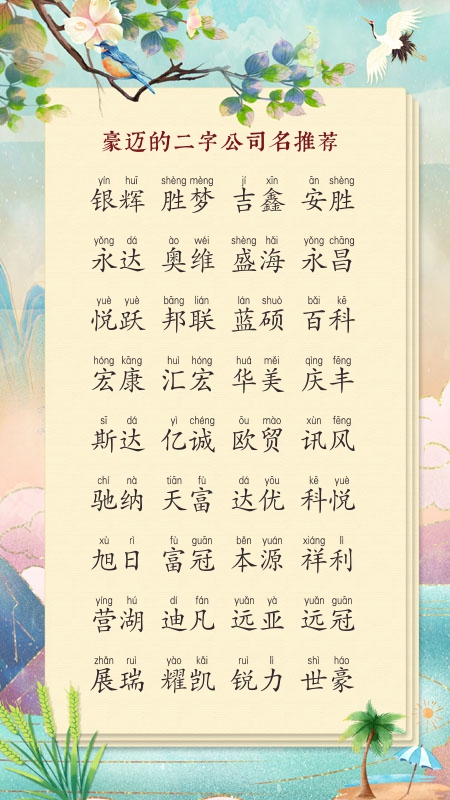 豪迈的二字公司名推荐
yín huī shèng mèng jí xīn ān shèng
银辉 胜梦 吉鑫 安胜
yǒng dá ào wéi shèng hǎi yǒng chāng
永达 奥维 盛海 永昌
yuè yuè bāng lián lán shuò bǎi kē
悦跃 邦联 蓝硕 百科
hóng kāng huì hóng huá měi qìng fēng
宏康 汇宏 华美 庆丰
sī dá yì chéng ōu mào xùn fēng
斯达 亿诚 欧贸 讯风
chí nà tiān fù dá yōu kē yuè
驰纳 天富 达优 科悦
xù rì fù guān běn yuán xiáng lì
旭日 富冠 本源 祥利
yíng hú dí fán yuǎn yà yuǎn guān
营湖 迪凡 远亚 远冠
zhǎn ruì yào kǎi ruì lì shì háo
展瑞 耀凯 锐力 世豪